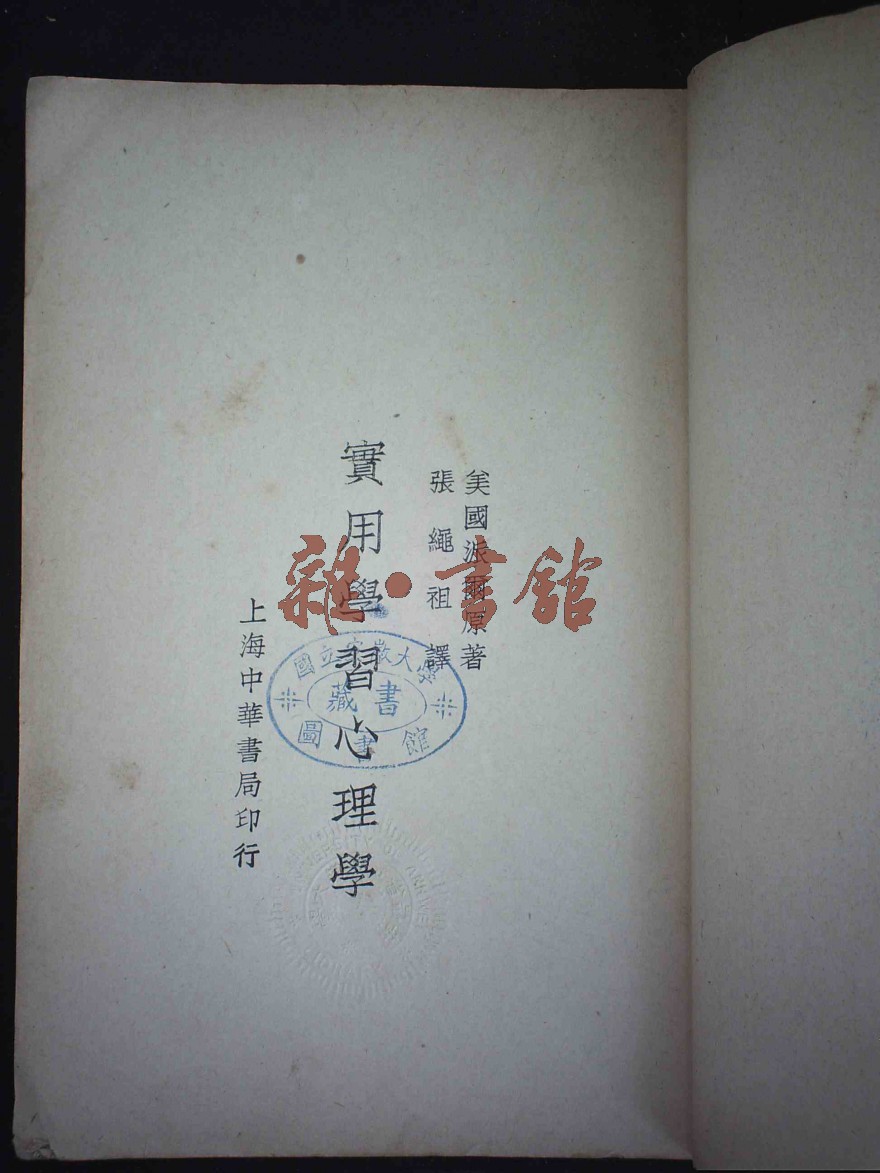 美國派爾原著
張繩祖譯
實用學習心理學
上海中華書局印行
國立安徽大學
藏書
圖書館
雜·書館